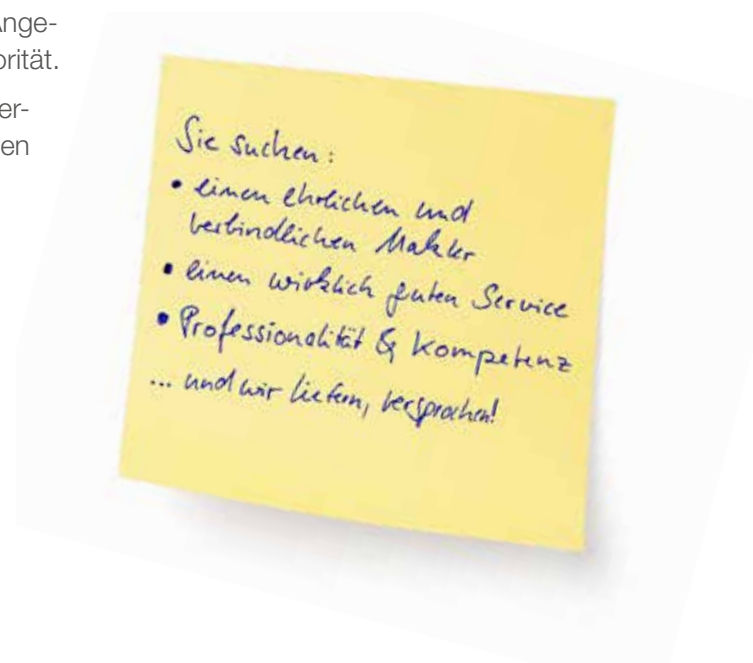 Ange-
orität.
er-
en
Sie suchen:
• einen ehrlichen und
verbindlichen Makler
• einen wirklich guten Service
• Professionalität & Kompetenz
... und wir liefern, versprochen!